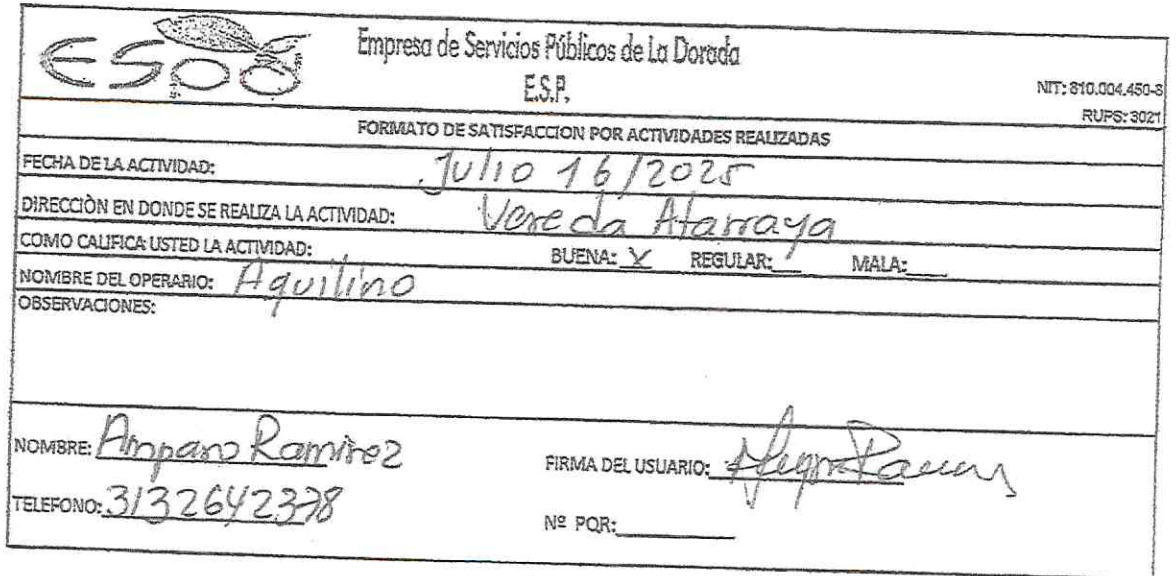 ESPD
Empresa de Servicios Públicos de La Dorada
E.S.P.
NIT: 810.004.450-8
RUPS: 3021
FORMATO DE SATISFACCION POR ACTIVIDADES REALIZADAS
FECHA DE LA ACTIVIDAD: Julio 16/2025
DIRECCIÒN EN DONDE SE REALIZA LA ACTIVIDAD: Vereda Atarraya
COMO CALIFICA USTED LA ACTIVIDAD: BUENA: X REGULAR:___ MALA:____
NOMBRE DEL OPERARIO: Aquilino
OBSERVACIONES:
NOMBRE: Amparo Ramirez
FIRMA DEL USUARIO:
TELEFONO: 3132642378
Nº PQR: